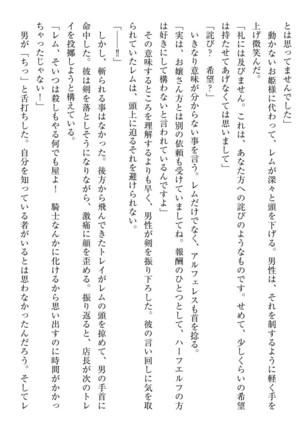 とは思ってませんでした」
動かないお姫様に代わって、レムが深々と頭を下げる。男性は、それを制するように軽く手を
上げ微笑んだ。
「礼には及びません。これは、あなた方への詫びのようなものです。せめて、少しくらいの希望
は持たせてあげなくてはと思いまして」
「詫び？　希望？」
いきなり意味が分からない事を言う。レムだけでなく、アルフェレスも首を捻る。
「実は、お嬢さん方とは別の依頼も受けていましてね。報酬のひとつとして、ハーフエルフの方
は好きにして構わないと言われているんですよ」
その意味するところを理解するよりも早く、男性が剣を振り下ろした。彼の言い回しに気を取
られていたレムは、頭上に迫るそれを避けられない。
「――!!」
しかし、斬られる事はなかった。後方から飛んできたトレイがレムの頭を掠めて、男の手首に
命中した。彼は剣を落としそうになりながら、激痛に顔を歪める。振り返ると、店長が次のトレ
イを投擲しようと構えている。
「レム、そいつは殺しもやる何でも屋よ！　騎士なんかに化けるから思い出すのに時間がかかっ
ちゃったじゃない！」
男が「ちっ」と舌打ちした。自分を知っている者がいるとは思わなかったんだろう。そしてレ